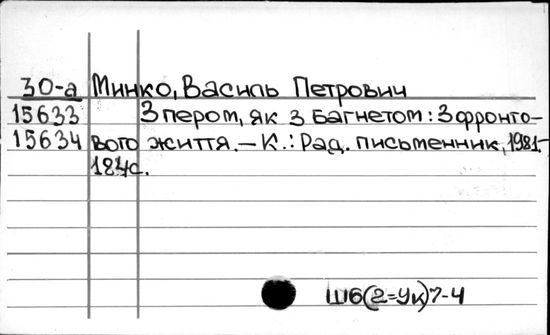 30-а Минко, Василь Петрович
15633 З пером, як з багнетом: З фронто-
15634 вого життя. – К.: Рад. письменник, 1981.-
184с.
Ш6(2=Ук)7-4